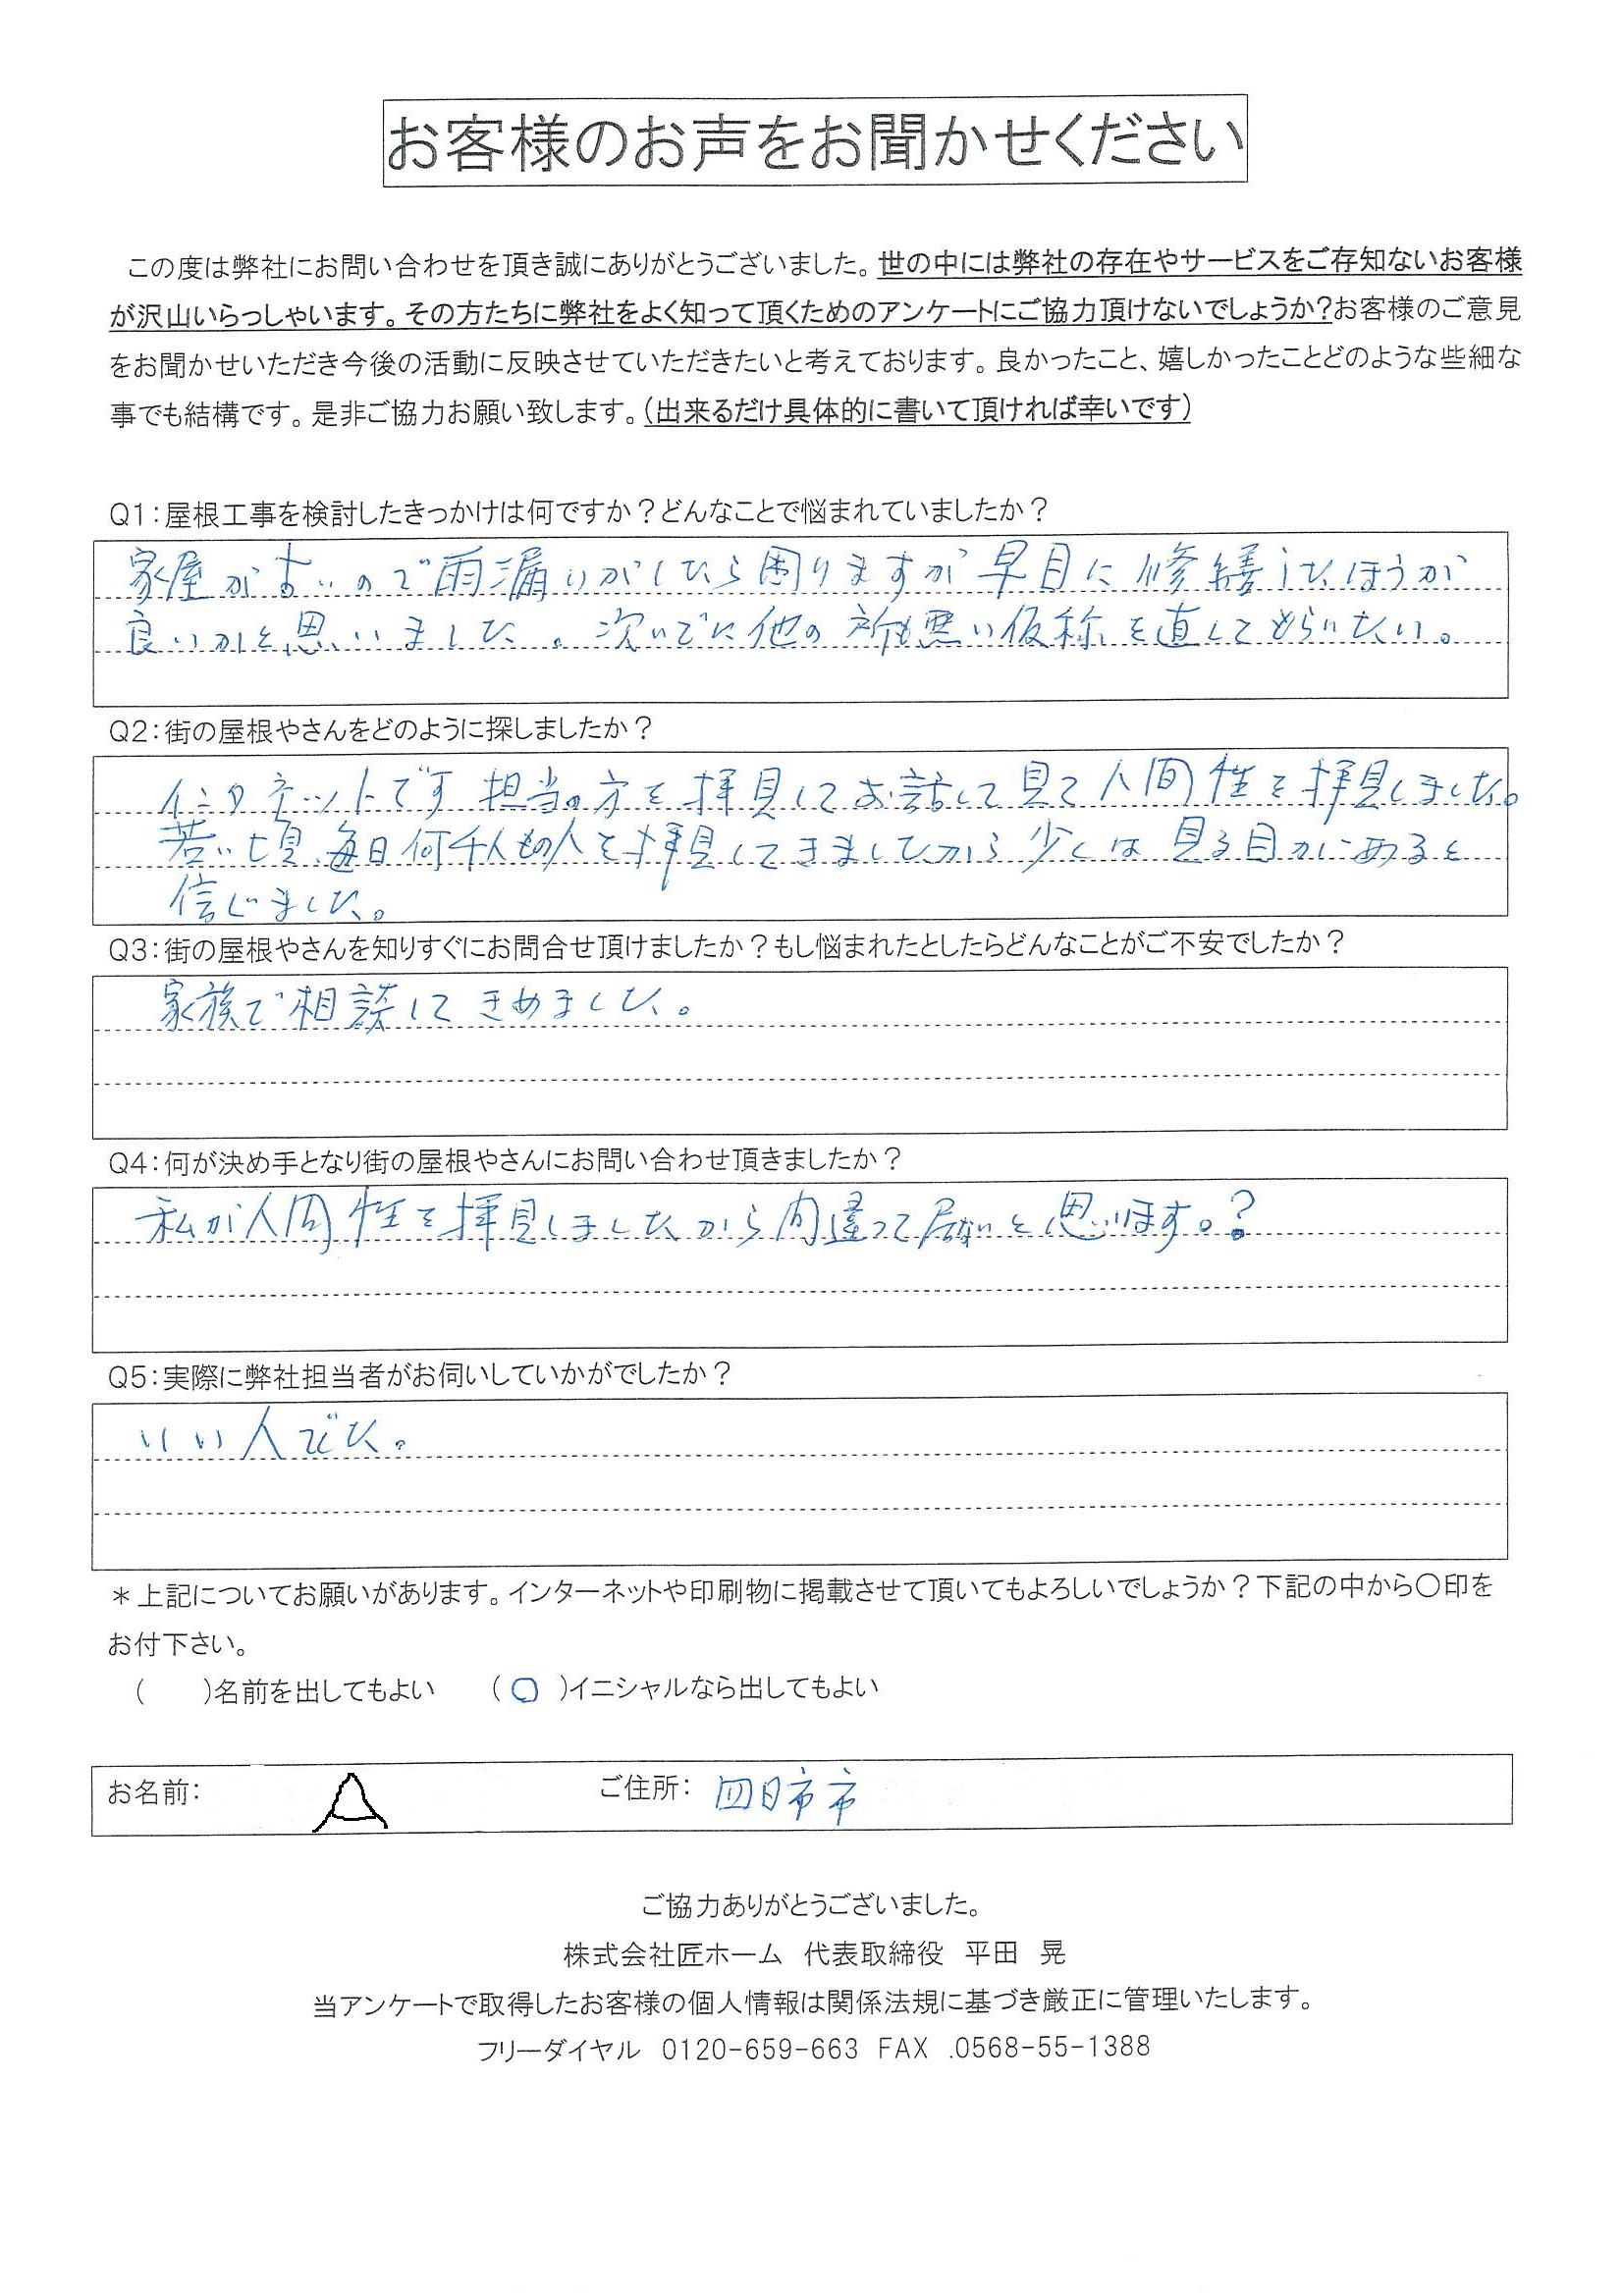 お客様のお声をお聞かせください
この度は弊社にお問い合わせを頂き誠にありがとうございました。世の中には弊社の存在やサービスをご存知ないお客様
が沢山いらっしゃいます。その方たちに弊社をよく知って頂くためのアンケートにご協力頂けないでしょうか?お客様のご意見
をお聞かせいただき今後の活動に反映させていただきたいと考えております。良かったこと、嬉しかったことどのような些細な
事でも結構です。是非ご協力お願い致します。(出来るだけ具体的に書いて頂ければ幸いです)
Q1:屋根工事を検討したきっかけは何ですか?どんなことで悩まれていましたか?
家屋が古いので雨漏りがしたら困りますが早目に修繕したほうが
良いかと思いました。次いでに他の所も悪い仮称を直してもらいたい。
Q2:街の屋根やさんをどのように探しましたか?
インタネットです担当の方を拝見してお話して見て人間性を拝見しました。
若い頃、毎日何千人もの人を拝見してきましたから少しは見る目がにあると
信じました。
Q3:街の屋根やさんを知りすぐにお問合せ頂けましたか?もし悩まれたとしたらどんなことがご不安でしたか?
家族で相談してきめました。
Q4:何が決め手となり街の屋根やさんにお問い合わせ頂きましたか?
私が人間性を拝見しましたから間違って居ないと思います。?
Q5:実際に弊社担当者がお伺いしていかがでしたか?
いい人でした。
*上記についてお願いがあります。インターネットや印刷物に掲載させて頂いてもよろしいでしょうか?下記の中から〇印を
お付下さい。
( )名前を出してもよい (〇)イニシャルなら出してもよい
お名前: A ご住所: 四日市市
ご協力ありがとうございました。
株式会社匠ホーム 代表取締役 平田 晃
当アンケートで取得したお客様の個人情報は関係法規に基づき厳正に管理いたします。
フリーダイヤル 0120-659-663 FAX .0568-55-1388